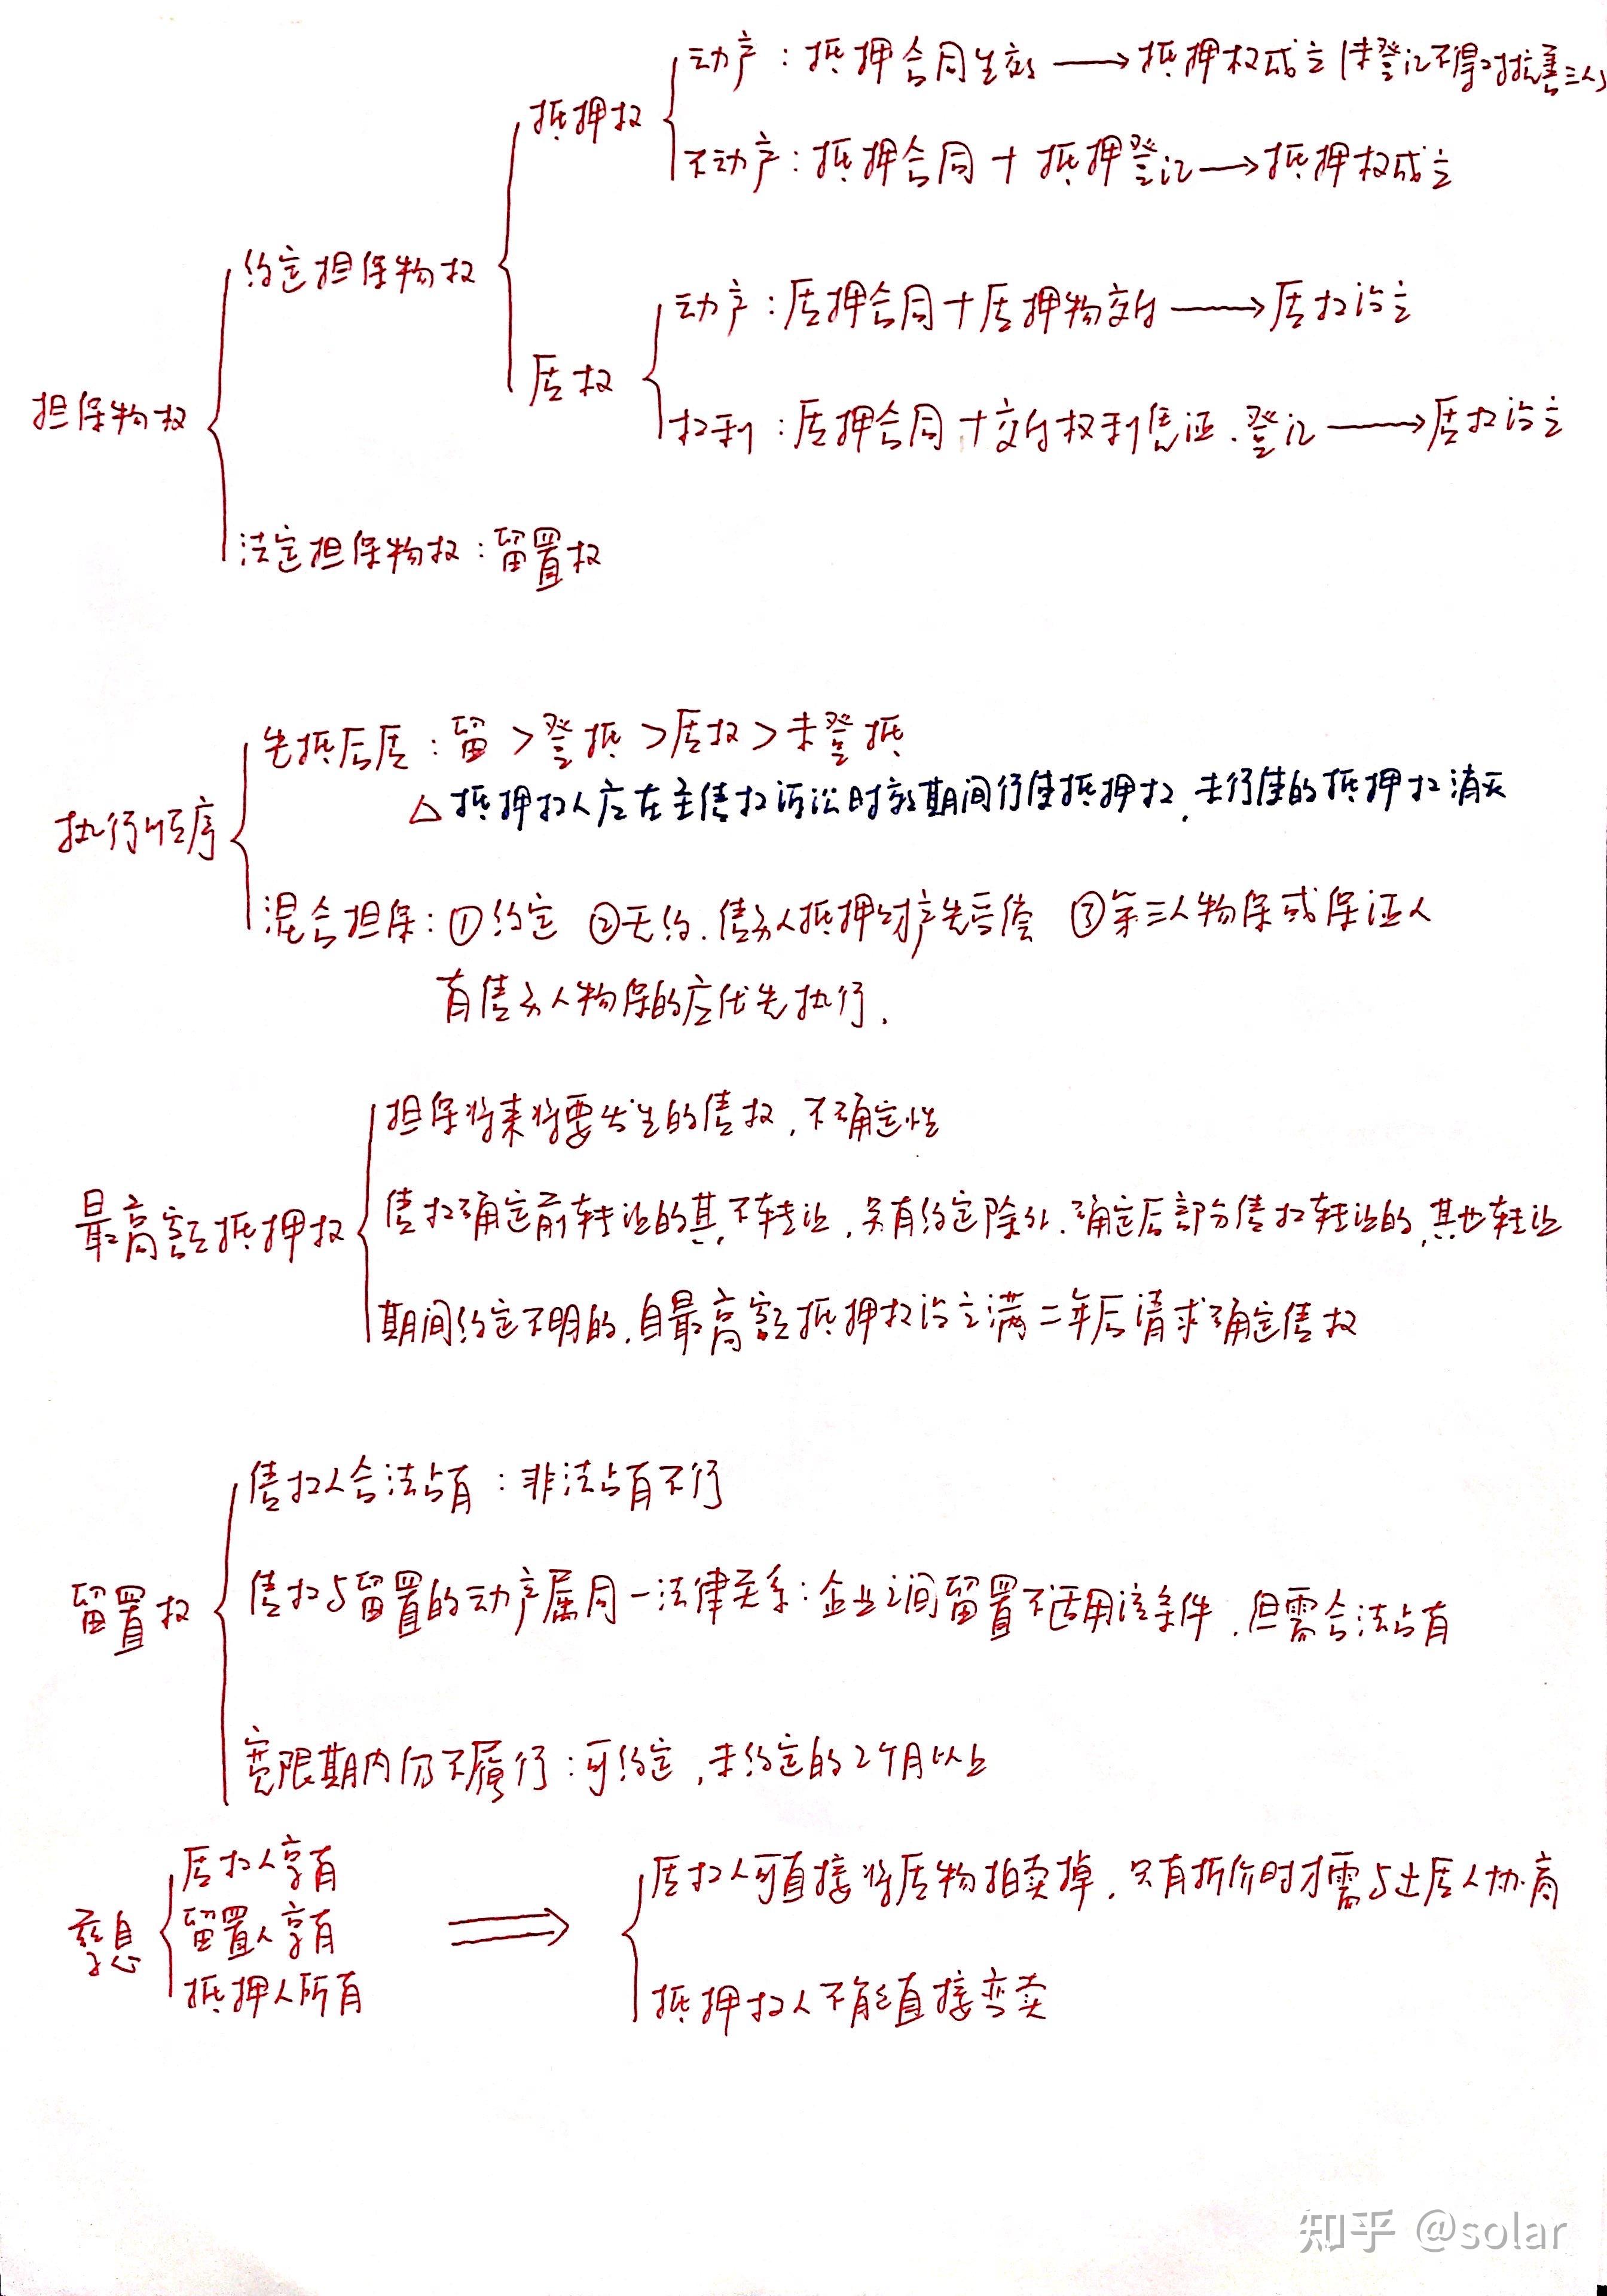 动产：抵押合同生效→抵押权成立(未登记不得对抗善三人)
抵押权
不动产：抵押合同+抵押登记→抵押权成立
约定担保物权
动产：质押合同+质押物交付→质权设立
质权
担保物权
权利：质押合同+交付权利凭证、登记→质权设立
法定担保物权：留置权
先抵后质：留>登抵>质权>未登抵
△抵押权人应在主债权诉讼时效期间行使抵押权，未行使的抵押权消灭
执行顺序
混合担保：①约定 ②无约，债务人抵押财产先受偿 ③第三人物保或保证人
有债务人物保的应优先执行.
担保将来将要发生的债权，不确定性
最高额抵押权
债权确定前转让的其不转让，另有约定除外，确定后部分债权转让的，其也转让
期间约定不明的，自最高额抵押权设立满二年后请求确定债权
债权人合法占有：非法占有不行
留置权
债权与留置的动产属同一法律关系：企业之间留置不适用该条件，但需合法占有
宽限期内仍不履行：可约定，未约定的2个月以上
质权人享有
质权人可直接将质物拍卖掉，只有折价时才需与出质人协商
孳息
留置人享有
⇒
抵押人所有
抵押权人不能直接变卖
知乎 @solar